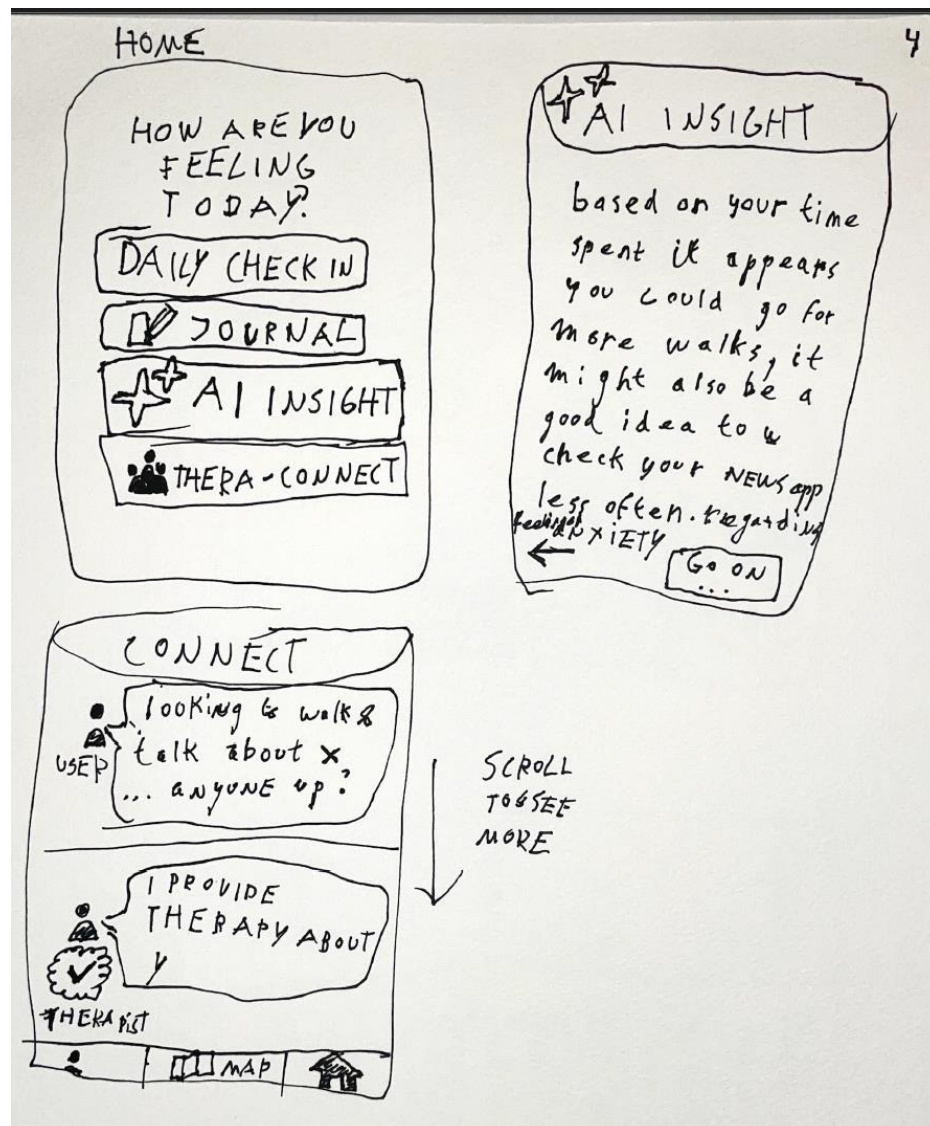 HOME
4
HOW ARE YOU
FEELING
TODAY?
DAILY CHECK IN
JOURNAL
AI INSIGHT
THERA-CONNECT
AI INSIGHT
based on your time
spent it appears
you could go for
more walks, it
might also be a
good idea to
check your NEWS app
less often. regarding
feelings
ANXIETY
GO ON
...
CONNECT
looking to walk &
talk about x
... ANYONE up?
USER
SCROLL
TO SEE
MORE
I PROVIDE
THERAPY ABOUT
Y
THERAPIST
MAP